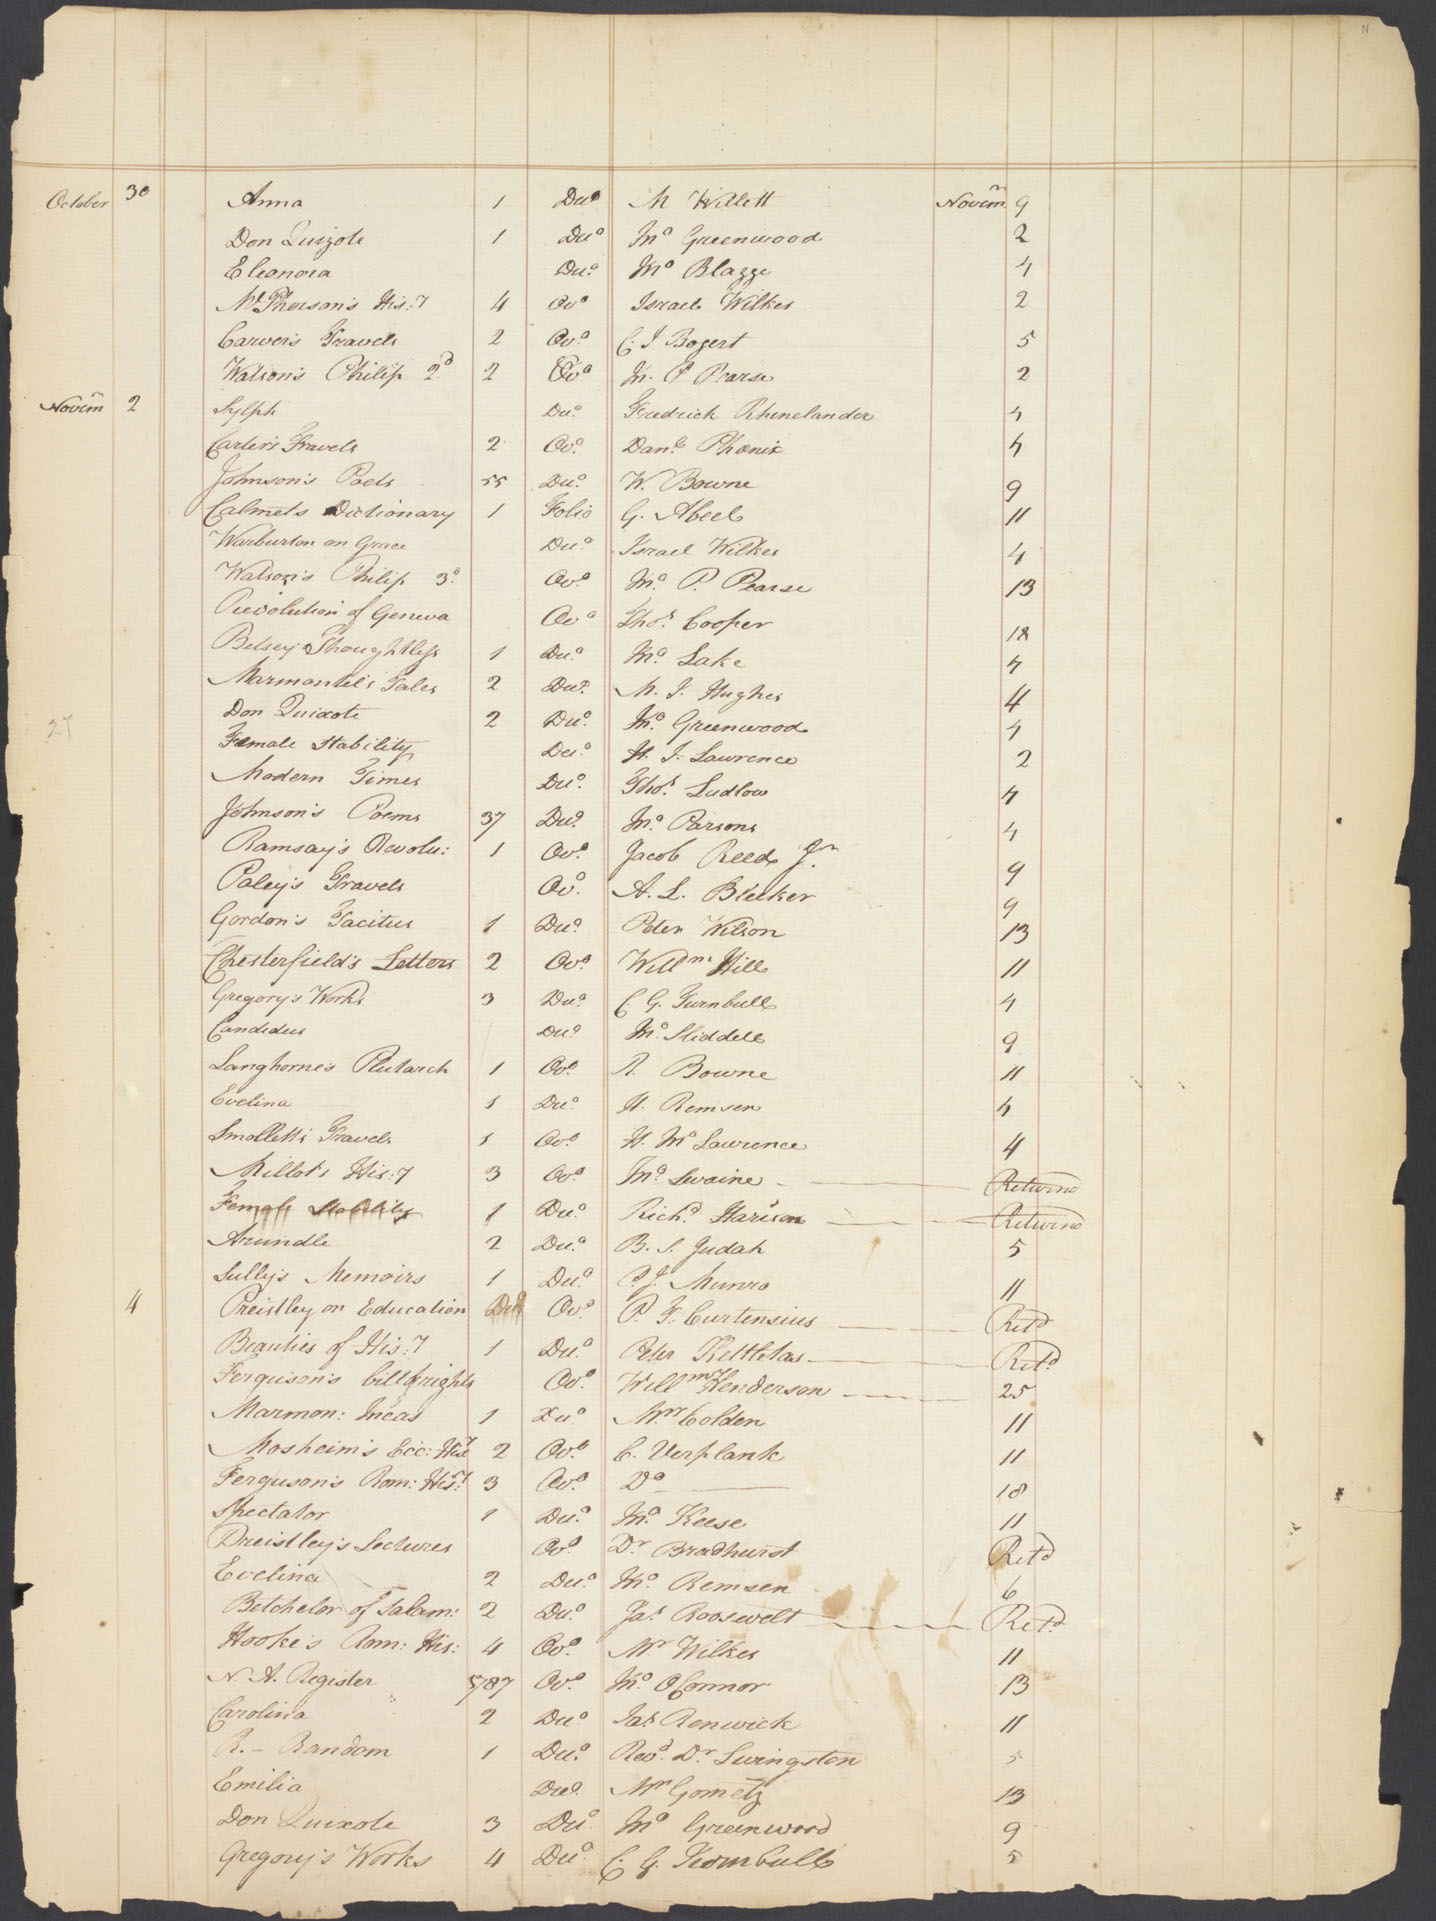 11
October 30 Anna 1 Duo M Willett Novem 9
Don Quizote 1 Duo Jno Greenwood 2
Eleonora Duo Jno Blagge 4
McPherson's His:y 4 Ovo Israel Wilkes 2
Carver's Travels 2 Ovo C. J Bogert 5
Watson's Philip 2d 2 Ovo Jn. P Pearse 2
Novem 2 Sylph Duo Fredrick Rhinelander 4
Carter's Travels 2 Ovo Danl Phœnix 4
Johnson's Poets 55 Duo W. Bowne 9
Calmets Dictionary 1 Folio G. Abeel 11
Warburton on Grace Duo Israel Wilkes 4
Watson's Philip 3d Ovo Jno P. Pearse 13
Revolution of Geneva Ovo Thos Cooper 18
Betsey Thoughtless 1 Duo Jno Lake 4
Marmontel's Tales 2 Duo M. J. Hughes 4
Don Quixote 2 Duo Jno Greenwood 4
27
Female Stability Duo H. J. Lawrence 2
Modern Times Duo Thos Ludlow 4
Johnson's Poems 37 Duo Jno Parsons 4
Ramsay's Revolu: 1 Ovo Jacob Reed Jr 9
Paley's Travels Ovo A. L. Bleeker 9
Gordon's Tacitus 1 Duo Peter Wilson 13
Chesterfield's Letters 2 Ovo Willm Hill 11
Gregory's Works 3 Duo C. G. Turnbull 4
Candidus Duo Jno Sliddell 9
Langhorne's Plutarch 1 Ovo R. Bowne 11
Evelina 1 Duo H. Remsen 4
Smollett's Travels 1 Ovo H. Mc Lawrence 4
Millot's His:y 3 Ovo Jno Swaine Returnd
Female Stability 1 Duo Richd Harison Returnd
Arundle 2 Duo B. S. Judah 5
Sully's Memoirs 1 Duo P. J. Munro 11
4 Preistley on Education Duo Ovo P. T. Curtensius Retd
Beauties of His:y 1 Duo Peter Kettletas Retd
Ferguson's bill of rights Ovo Willm Henderson 25
Marmon: Incas 1 Duo Mrs Colden 11
Mosheim's Ecc: Hisy 2 Ovo C. Verplank 11
Ferguson's Rom: Hisy 3 Ovo Do 18
Spectator 1 Duo Jno Keese 11
Preistley's Lectures Ovo Dr Bradhurst Retd
Evelina 2 Duo Jno Remsen 6
Betchelor of Salam: 2 Duo Jas Roosevelt Retd
Hooke's Rom: His: 4 Ovo Mr Wilkes 11
N. A. Register 1787 Ovo Jno OConnor 13
Carolina 2 Duo Jas Renwick 11
R. - Random 1 Duo Revd Dr Livingston 5
Emilia Duo Mr Gometz 13
Don Quixote 3 Duo Jno Greenwood 9
Gregory's Works 4 Duo C. G. Turnbull 5